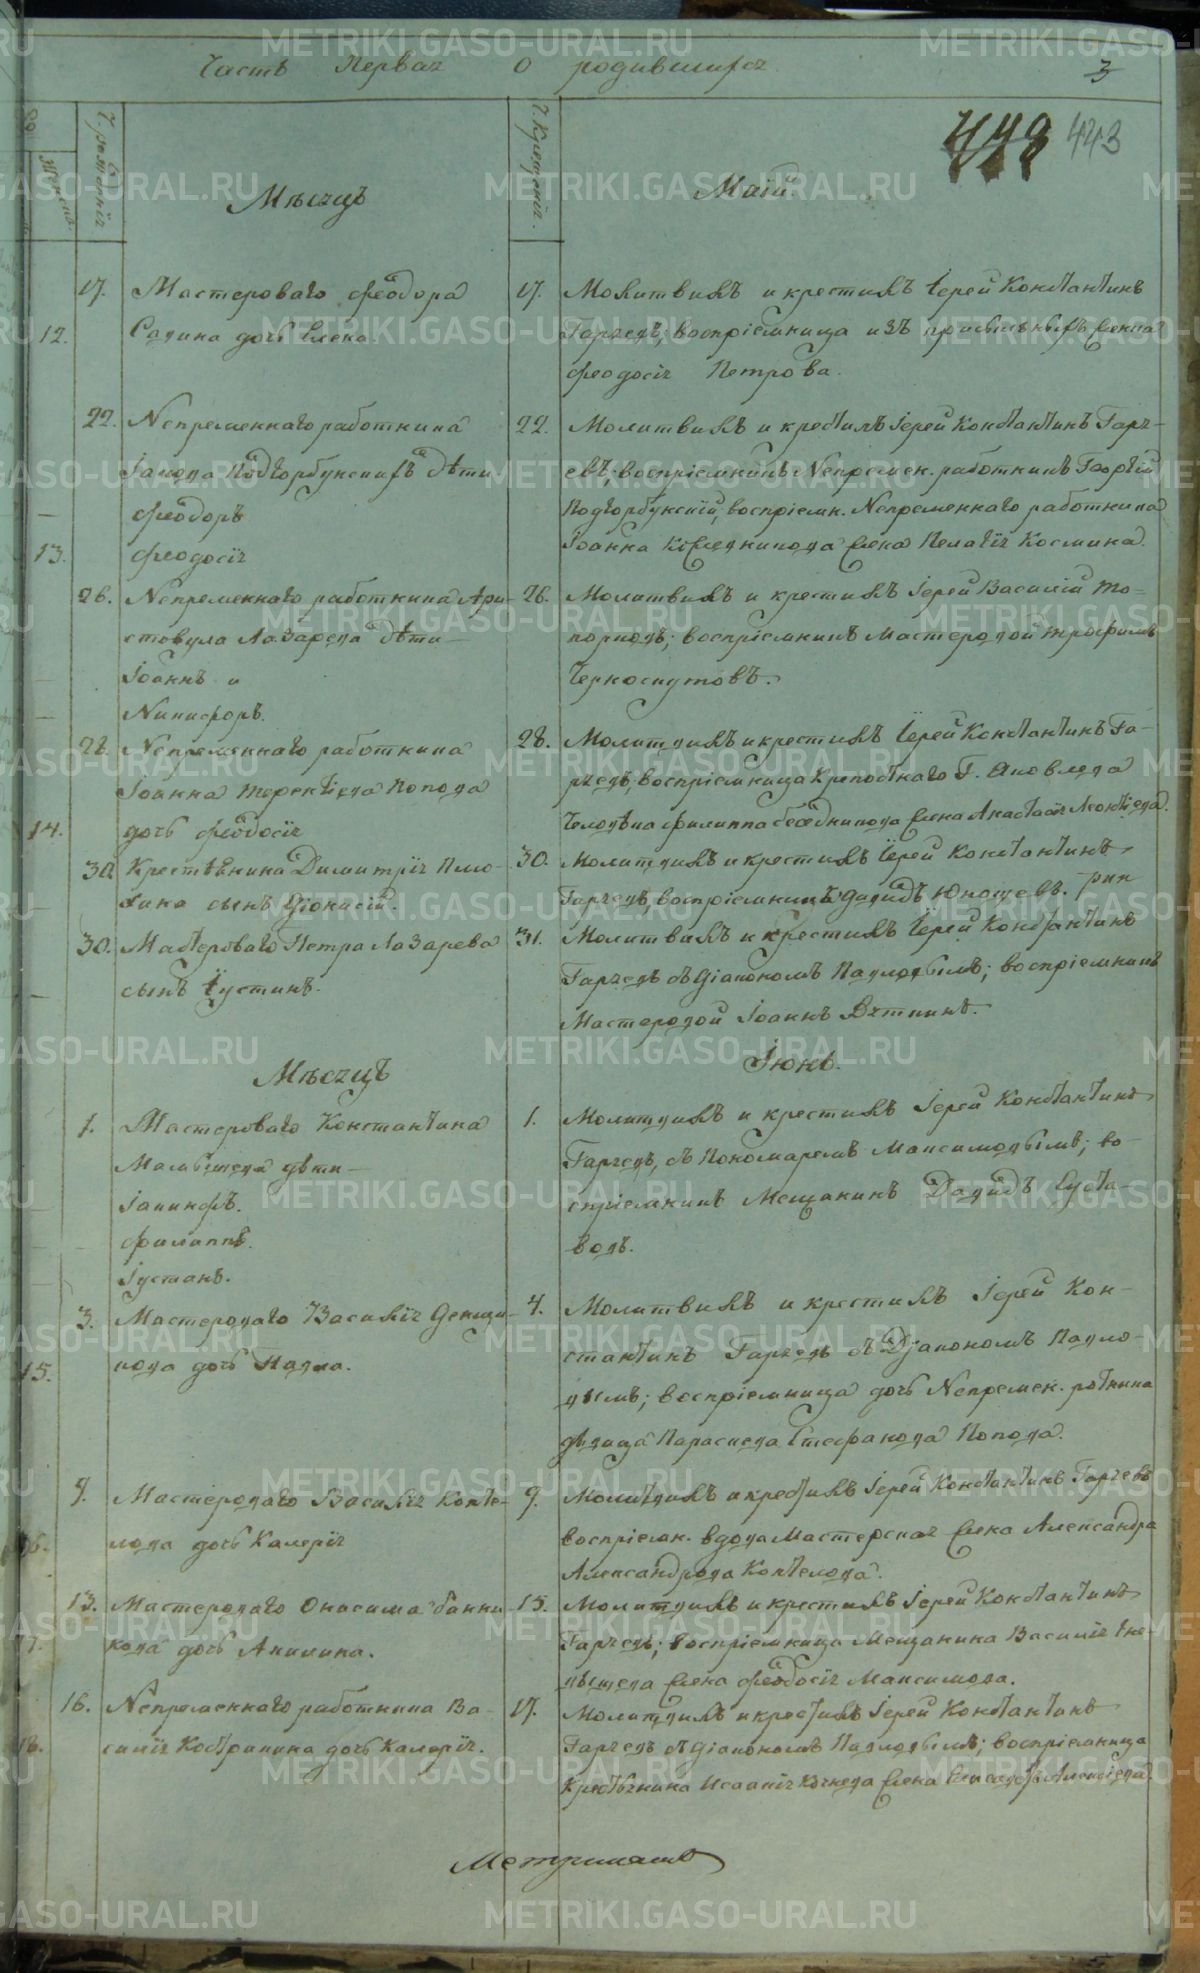 Часть Первая О родившихся
3
443
Женск.
Ч. рождения
Ч. Крещения.
Мѣсяцъ Маій.
12. 17. Мастероваго Феодора
дочь Елена.
17. Молитвилъ и крестилъ Іерей Константинъ
Гаряевъ; воспріемница изъ Елена
Феодосія Петрова.
22. Непременнаго работника
Іакова Подгорбунскихъ дѣти
Феодоръ
13. Феодосія
22. Молитвилъ и крестилъ Іерей Константинъ Гаря-
евъ; воспріемникъ Непремен. работникъ Георгій
Подгорбунскій; воспріемн. Непременнаго работника
Іоанна жена Пелагія Космина.
26. Непременнаго работника Ари-
стовула Лазарева дѣти
Іоаннъ и
Никифоръ.
26. Молитвилъ и крестилъ Іерей Василій То-
порковъ; воспріемникъ Мастеровой Трофимъ
Черноскутовъ.
28. Непременнаго работника
Іоанна Терентіева Попова
14. дочь Феодосія
28. Молитвилъ и крестилъ Іерей Константинъ Га-
ряевъ; воспріемница Крепостнаго Г. Яковлева
Человѣка Филиппа жена Анастасія Леонтіева.
30. Крестьянина Димитрія Пило-
сынъ Діонисій.
30. Молитвилъ и крестилъ Іерей Константинъ
Гаряевъ, воспріемникъ Давидъ
30. Мастероваго Петра Лазарева
сынъ Іустинъ.
31. Молитвилъ и крестилъ Іерей Константинъ
Гаряевъ съ Діакономъ Павловымъ; воспріемникъ
Мастеровой Іоаннъ Вяткинъ.
Мѣсяцъ Іюнь.
1. Мастероваго Константина
Малышева дѣти
Іакинфъ.
Филиппъ.
Іустинъ.
1. Молитвилъ и крестилъ Іерей Константинъ
Гаряевъ, съ Пономаремъ Максимовымъ; во-
спріемникъ Мещанинъ Давидъ Суста-
вовъ.
3. Мастероваго Василія Денщи-
15. кова дочь Павла.
4. Молитвилъ и крестилъ Іерей Кон-
стантинъ Гаряевъ съ Діакономъ Павло-
вымъ; воспріемница дочь Непремен. ротника
дѣвица Параскева Стефанова Попова.
9. Мастероваго Василія Копте-
лова дочь Калерія
9. Молитвилъ и крестилъ Іерей Константинъ Гаряевъ
воспріемн. вдова Мастерская Жена Александра
Александрова Коптелова.
13. Мастероваго Онисима Банни-
кова дочь Акилина.
15. Молитвилъ и крестилъ Іерей Константинъ
Гаряевъ; воспріемница Мещанина Василія Гне-
вышева жена Феодосія Максимова.
16. Непременнаго работника Ва-
18. силія Костранина дочь Калерія.
17. Молитвилъ и крестилъ Іерей Константинъ
Гаряевъ съ Діакономъ Павловымъ; воспріемница
Крестьянина Исаакія жена Елисавета Алексіева.